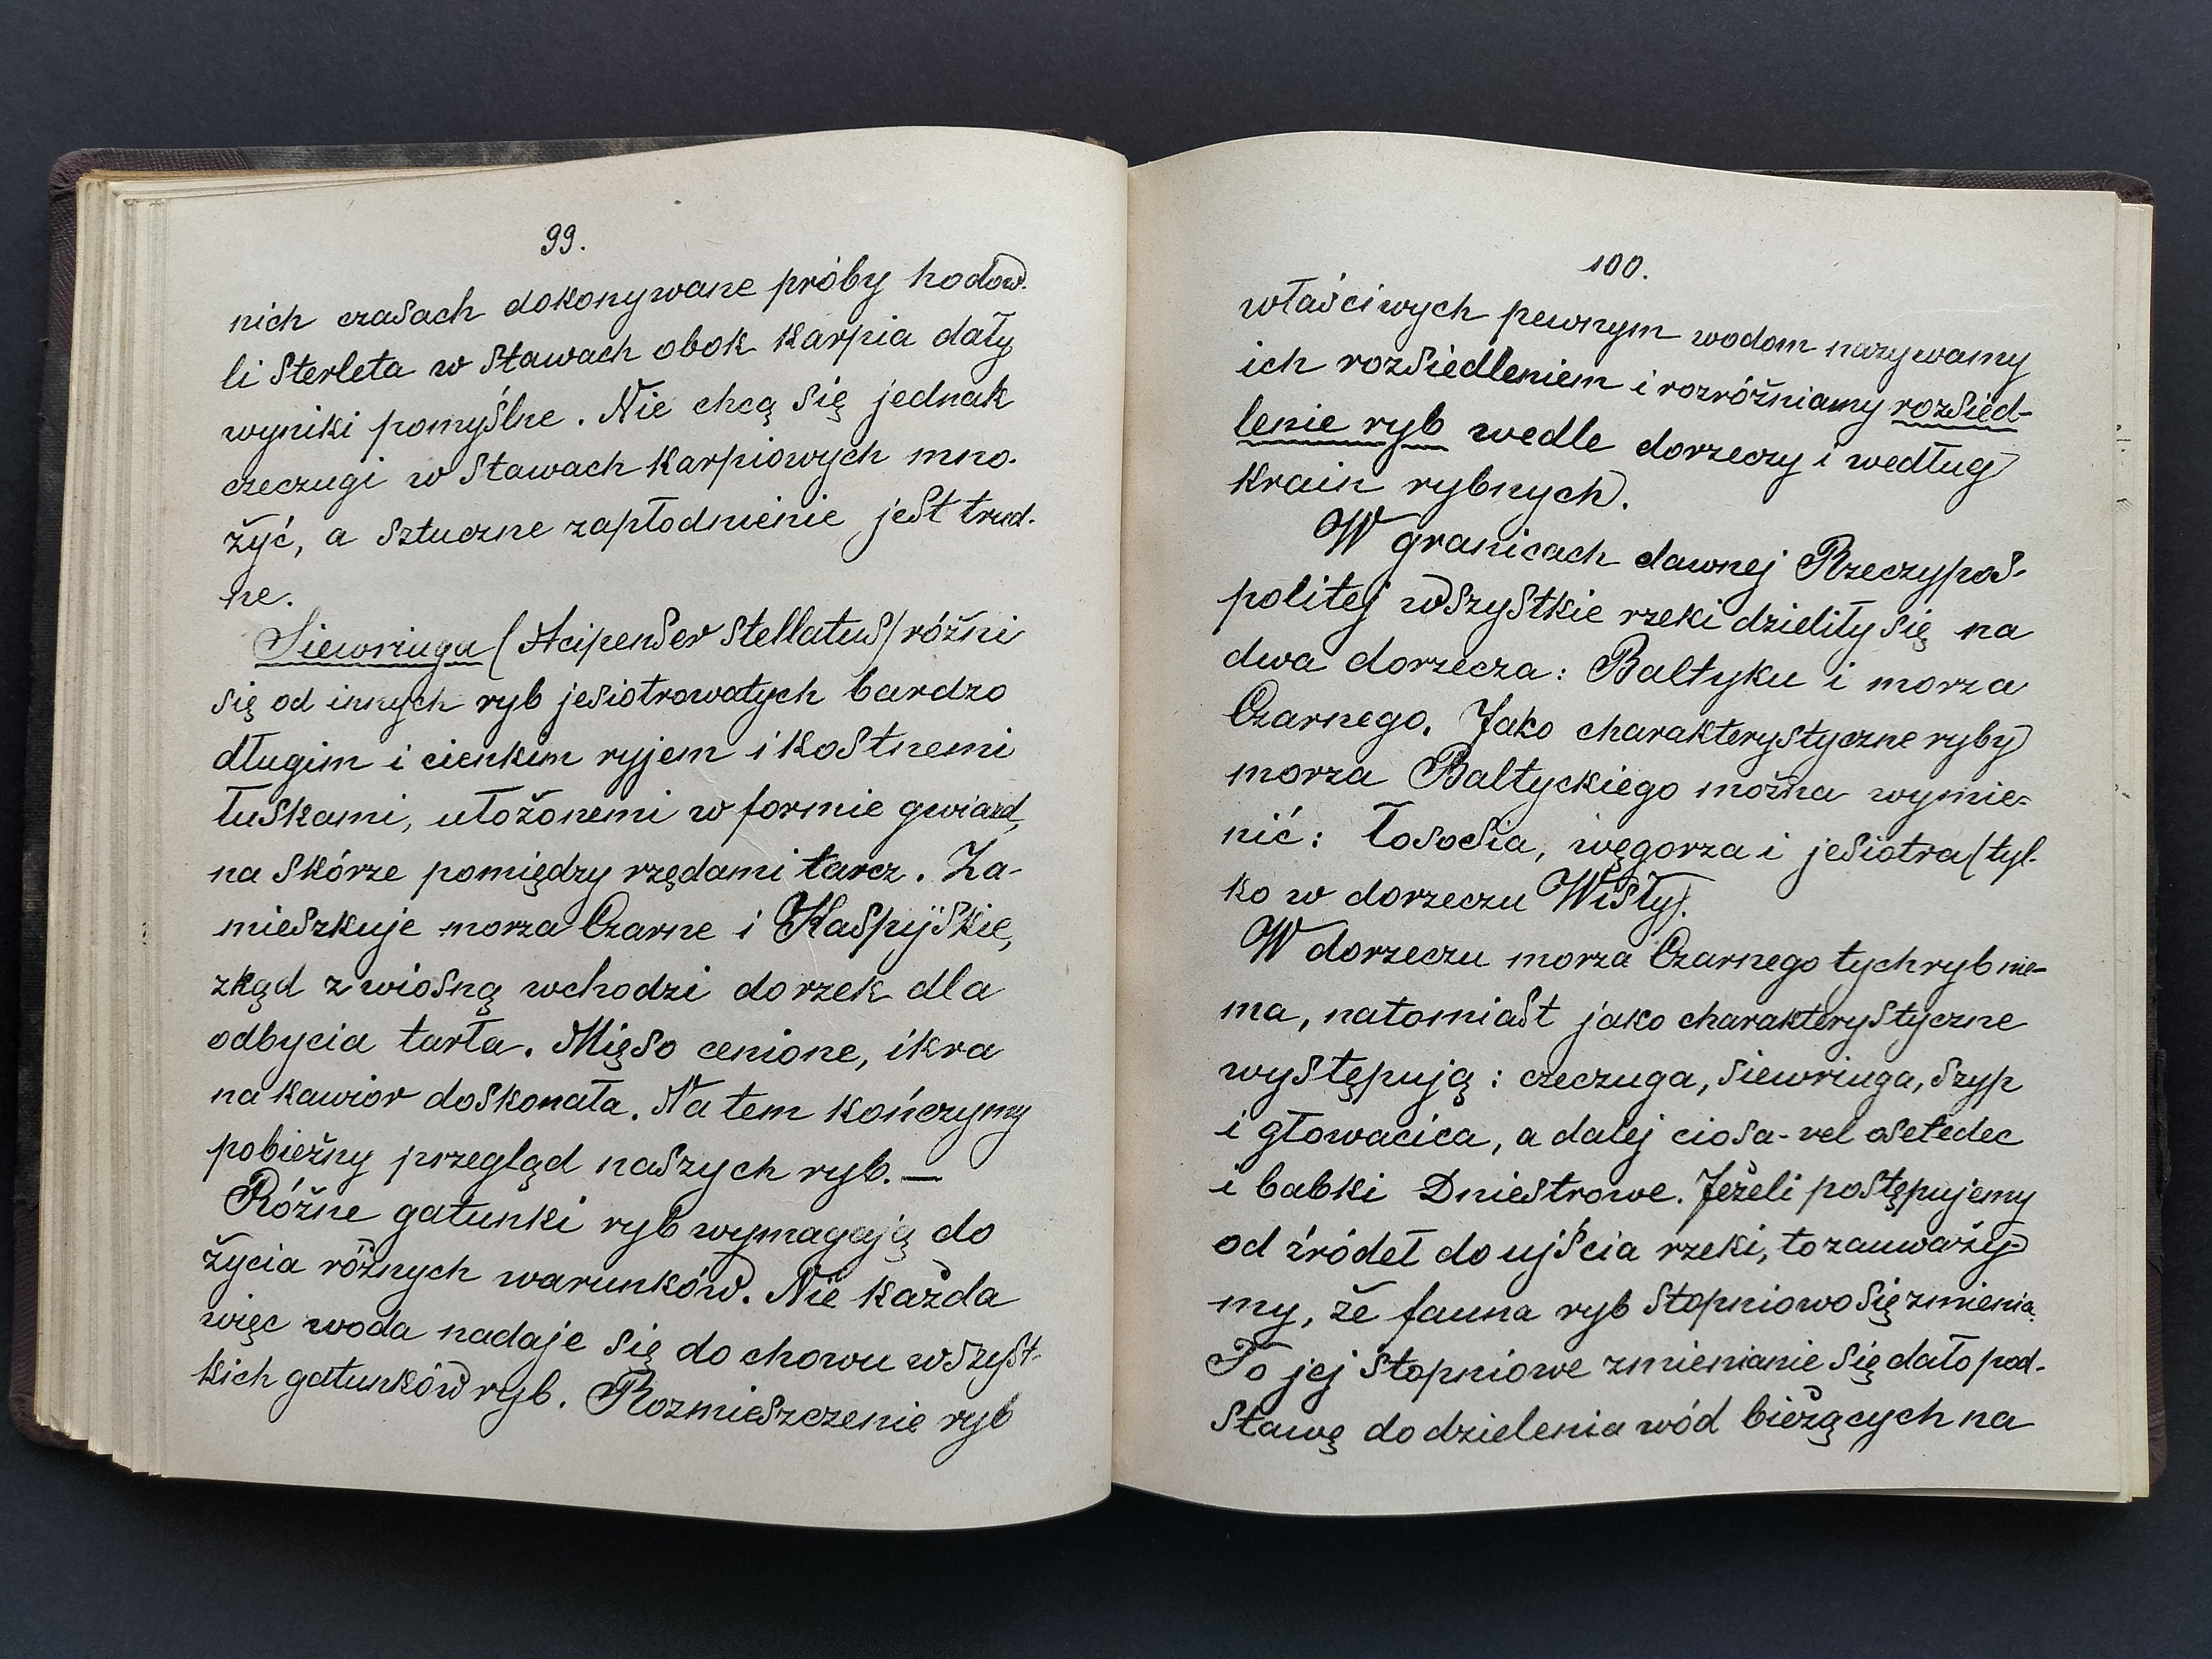 99.
nich czasach dokonywane próby hodow.
li Sterleta w Stawach obok Karpia dały
wyniki pomyślne. Nie chcą się jednak
czeczugi w Stawach Karpiowych mno.
żyć, a sztuczne zapłodnienie jest trud.
ne.
Siewriuga (Acipenser Stellatus) różni
się od innych ryb jesiotrowatych bardzo
długim i cienkim ryjem i kostnemi
łuskami, ułożonemi w formie gwiazd,
na skórze pomiędzy rzędami tarcz. Za-
mieszkuje morza Czarne i Kaspijskie,
zkąd z wiosną wchodzi do rzek dla
odbycia tarła. Mięso cenione, ikra
na kawior doskonała. Na tem kończymy
pobieżny przegląd naszych ryb. —
Różne gatunki ryb wymagają do
życia różnych warunków. Nie każda
więc woda nadaje się do chowu wszyst-
kich gatunków ryb. Rozmieszczenie ryb
100.
właściwych pewnym wodom nazywamy
ich rozsiedleniem i rozróżniamy rozsied-
lenie ryb wedle dorzeczy i według
Krain rybnych.
W granicach dawnej Rzeczypos-
politej wszystkie rzeki dzieliły się na
dwa dorzecza: Baltyku i morza
Czarnego. Jako charakterystyczne ryby
morza Baltyckiego można wymie-
nić: Łososia, węgorza i jesiotra (tyl-
ko w dorzeczu Wisły).
W dorzeczu morza Czarnego tych ryb nie-
ma, natomiast jako charakterystyczne
występują: czeczuga, siewriuga, szyp
i głowacica, a dalej ciosa- vel oseledec
i babki Dniestrowe. Jeżeli postępujemy
od źródeł do ujścia rzeki, to zauważy-
my, że fauna ryb stopniowo się zmienia.
To jej stopniowe zmienianie się dało pod-
stawę do dzielenia wód bieżących na